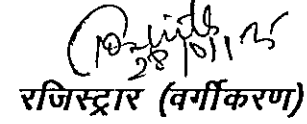 28/01/15
रजिस्ट्रार (वर्गीकरण)